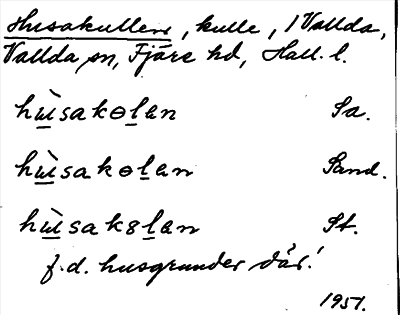 Husakullen, kulle, i Vallda,
Vallda sn, Fjäre hd, Hall. l.
hù̲sakɵl̲an Sa.
hù̲sakɵl̲an Sand.
hù̲sak8l̲an St.
f.d. husgrunder där!
1951.